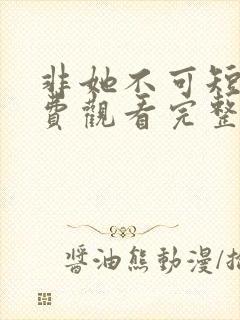 非她不可短
費觀看完整
醬油熊動漫/描